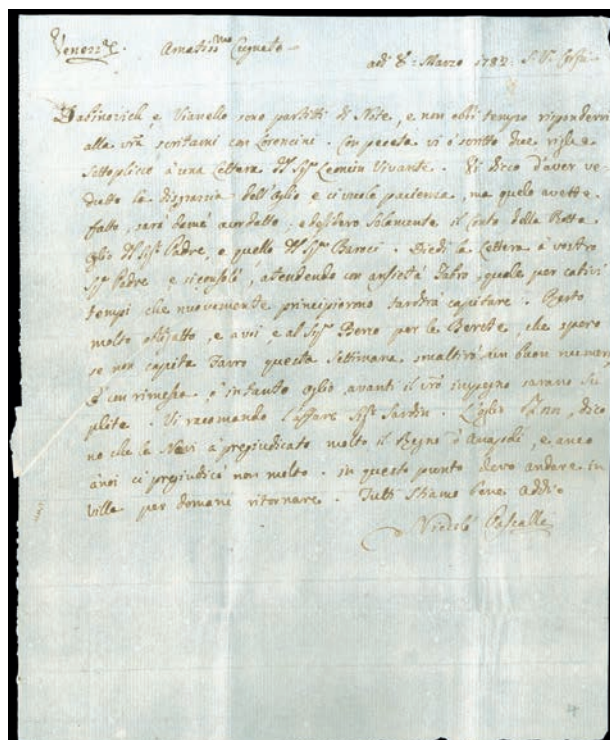 Venez.ª Amatiss.mo Cugnato
adi 8: Marzo 1782: S.V. Corfù
Dabinovich e Vianello sono partiti di Note, e non ebbi tempo rispondervi
alla vrã scritami con Lorencini. Con pecota vi ò scritto due righe
sottoplico à una Lettera Dl Sigr Leoncin Vivante. Vi dico d'aver ve-
duto la disgrazia dell'Oglio e ci vuole pacienza, ma quelo avette
fatto, sarà damè acordatto, e desidero solamente il Conto della Rotta
Oglio Dl Sigr Padre, e quello Dl Sigr Baroci. Diedi la Lettera à vostro
Sigr Padre e si consolò, atendendo con ansietà Fabro, quale per cativi
tempi che nuovemente principiorno tardrà capitare. Resto
molto obligatto, e avoi, e al Sigr Berro per le Berete, che spero
se non capita Favro questa Settimana smaltirò un buon numero
e con rimesse, o' intanto Oglio avanti il vrõ impegno sarano su-
plite. Vi racomando l'affare Sigr Sardin. L'Oglio dico-
no che le Nevi à pregiudicato molto il Regno d' Anapoli, e anco
ànoi ci pregiudicò non molto. in questo punto devo andare in
villa per domani ritornare. Tutti Stiamo bene addio
Nicolò Pascalle